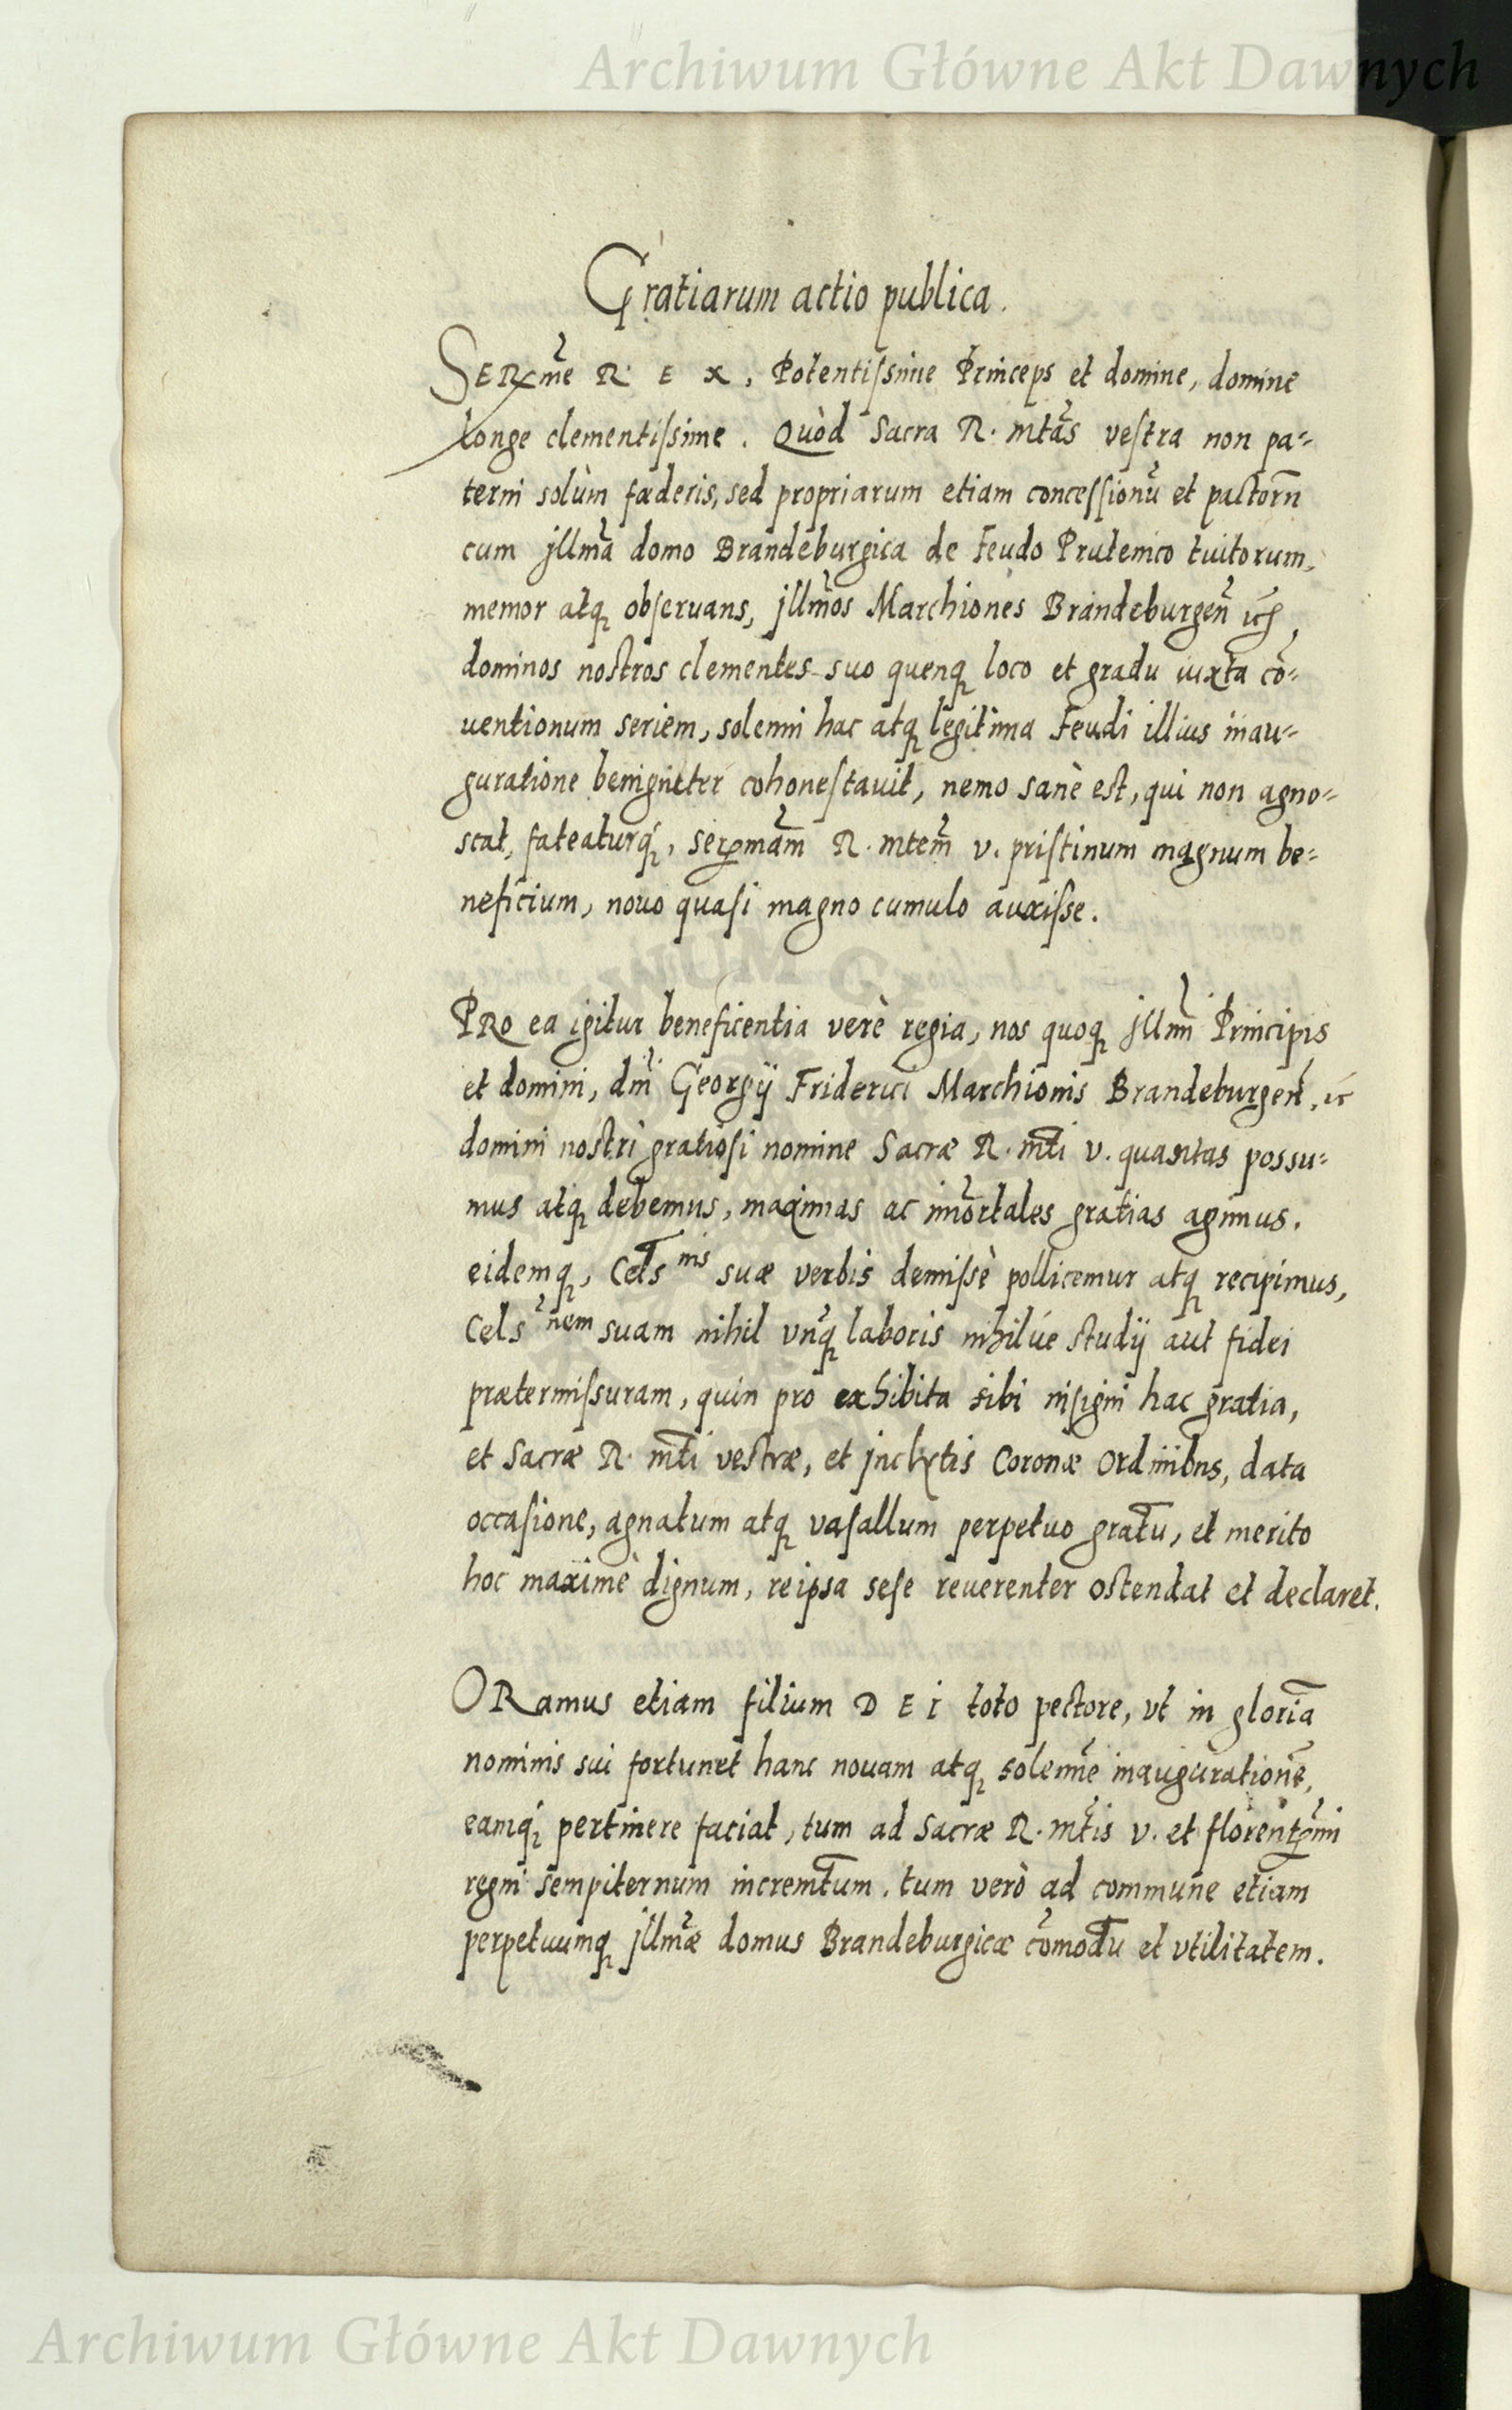 Archiwum Główne Akt Dawnych
Gratiarum actio publica.
SERme R E X, Potentissime Princeps et domine, domine
longe clementissime. Quòd Sacra R. mtas vestra non pa-
terni solùm fœderis, sed propriarum etiam concessionū et pactorn
cum jllma domo Brandeburgica de Feudo Prutenico tuitorum,
memor atq obseruans, jllmos Marchiones Brandeburgen̄ ꝛcꝭ,
dominos nostros clementes suo quenq loco et gradu iuxta cō-
uentionum seriem, solenni hac atq legitima Feudi illius inau-
guratione benigniter cohonestauit, nemo sanè est, qui non agno-
scat, fateaturq́, serꝑmam R. mtem v. pristinum magnum be-
neficium, nouo quasi magno cumulo auxisse.
PRO ea igitur beneficentia verè regia, nos quoq jllmi Principis
et domini, dn̄i Georgij Friderici Marchionis Brandeburgen̄, ꝛc
domini nostri gratiosi nomine Sacræ R. mti v. quantas possu-
mus atq debemus, maximas ac im̄ortales gratias agimus.
eidemq, Cels nis suæ verbis demissè pollicemur atq recipimus,
Cels nem suam nihil vnq̄ laboris nihilúe studij aut fidei
prætermissuram, quin pro exhibita sibi insigni hac gratia,
et Sacræ R. mti vestræ, et jnclytis Coronæ Ordinibus, data
occasione, agnatum atq vasallum perpetuo gratū, et merito
hoc maximè dignum, reipsa sese reuerenter ostendat et declaret.
ORamus etiam filium D E I toto pectore, vt in gloriā
nominis sui fortunet hanc nouam atq solennē inaugurationē,
eamq́ pertinere faciat, tum ad Sacræ R. mtis v. et florentꝑmi
regni sempiternum incremt̄um, tum verò ad commune etiam
perpetuumq jllmæ domus Brandeburgicæ cōmodū et vtilitatem.
Archiwum Główne Akt Dawnych